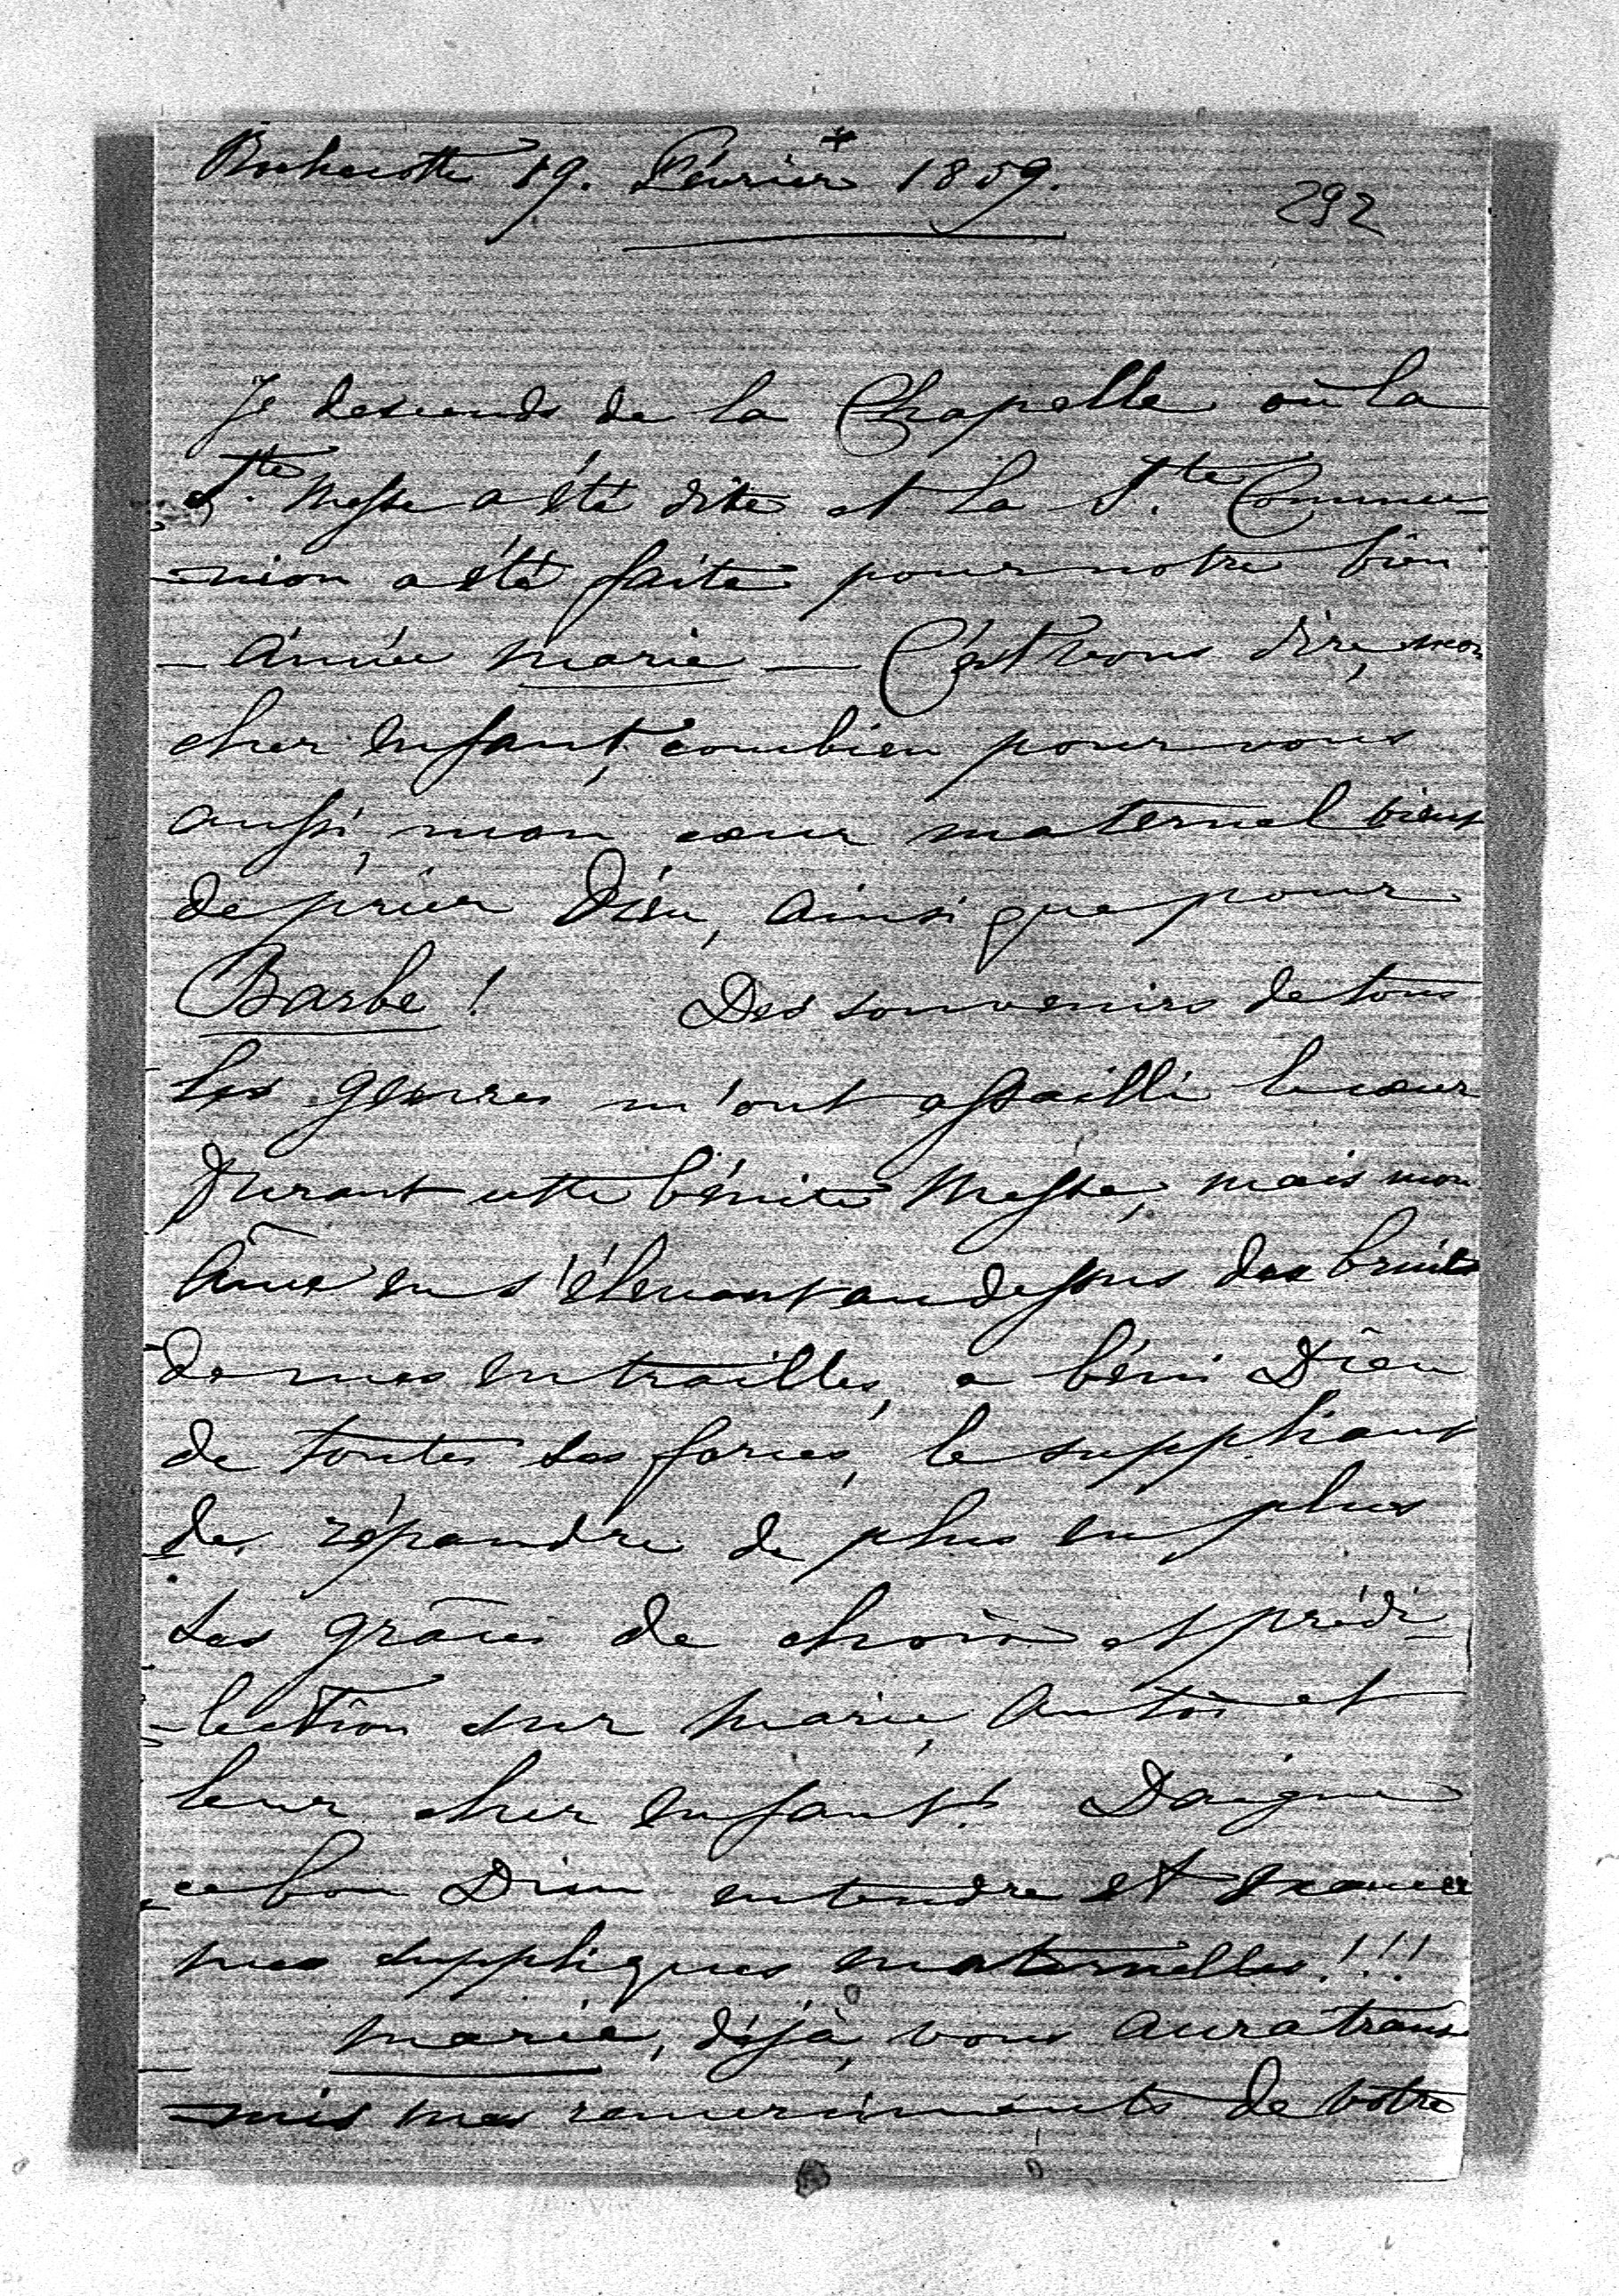 Rochecotte 19. Février 1859.
292
Je descends de la Chapelle où la
Ste. Messe a été dite et la Ste. Commu-
-nion a été faite pour notre bien
-aimée Marie — C'est vous dire, mon
cher enfant, combien pour vous
aussi, mon cœur maternel vient
de prier Dieu, ainsi que pour
Barbe! Des souvenirs de tous
les genres m'ont assailli le cœur
durant cette bénite Messe, mais mon
âme en s'élevant au dessus des bruits
de mes entrailles, a béni Dieu
de toutes ses forces, le suppliant
de répandre de plus en plus
ses grâces de choix et prédi-
-lection sur Marie, Antoi et
leur cher enfant! Daigne
ce bon Dieu entendre et exaucer
mes suppliques maternelles!!!
Marie, déjà, vous aura trans
-mis mes remerciments de votre